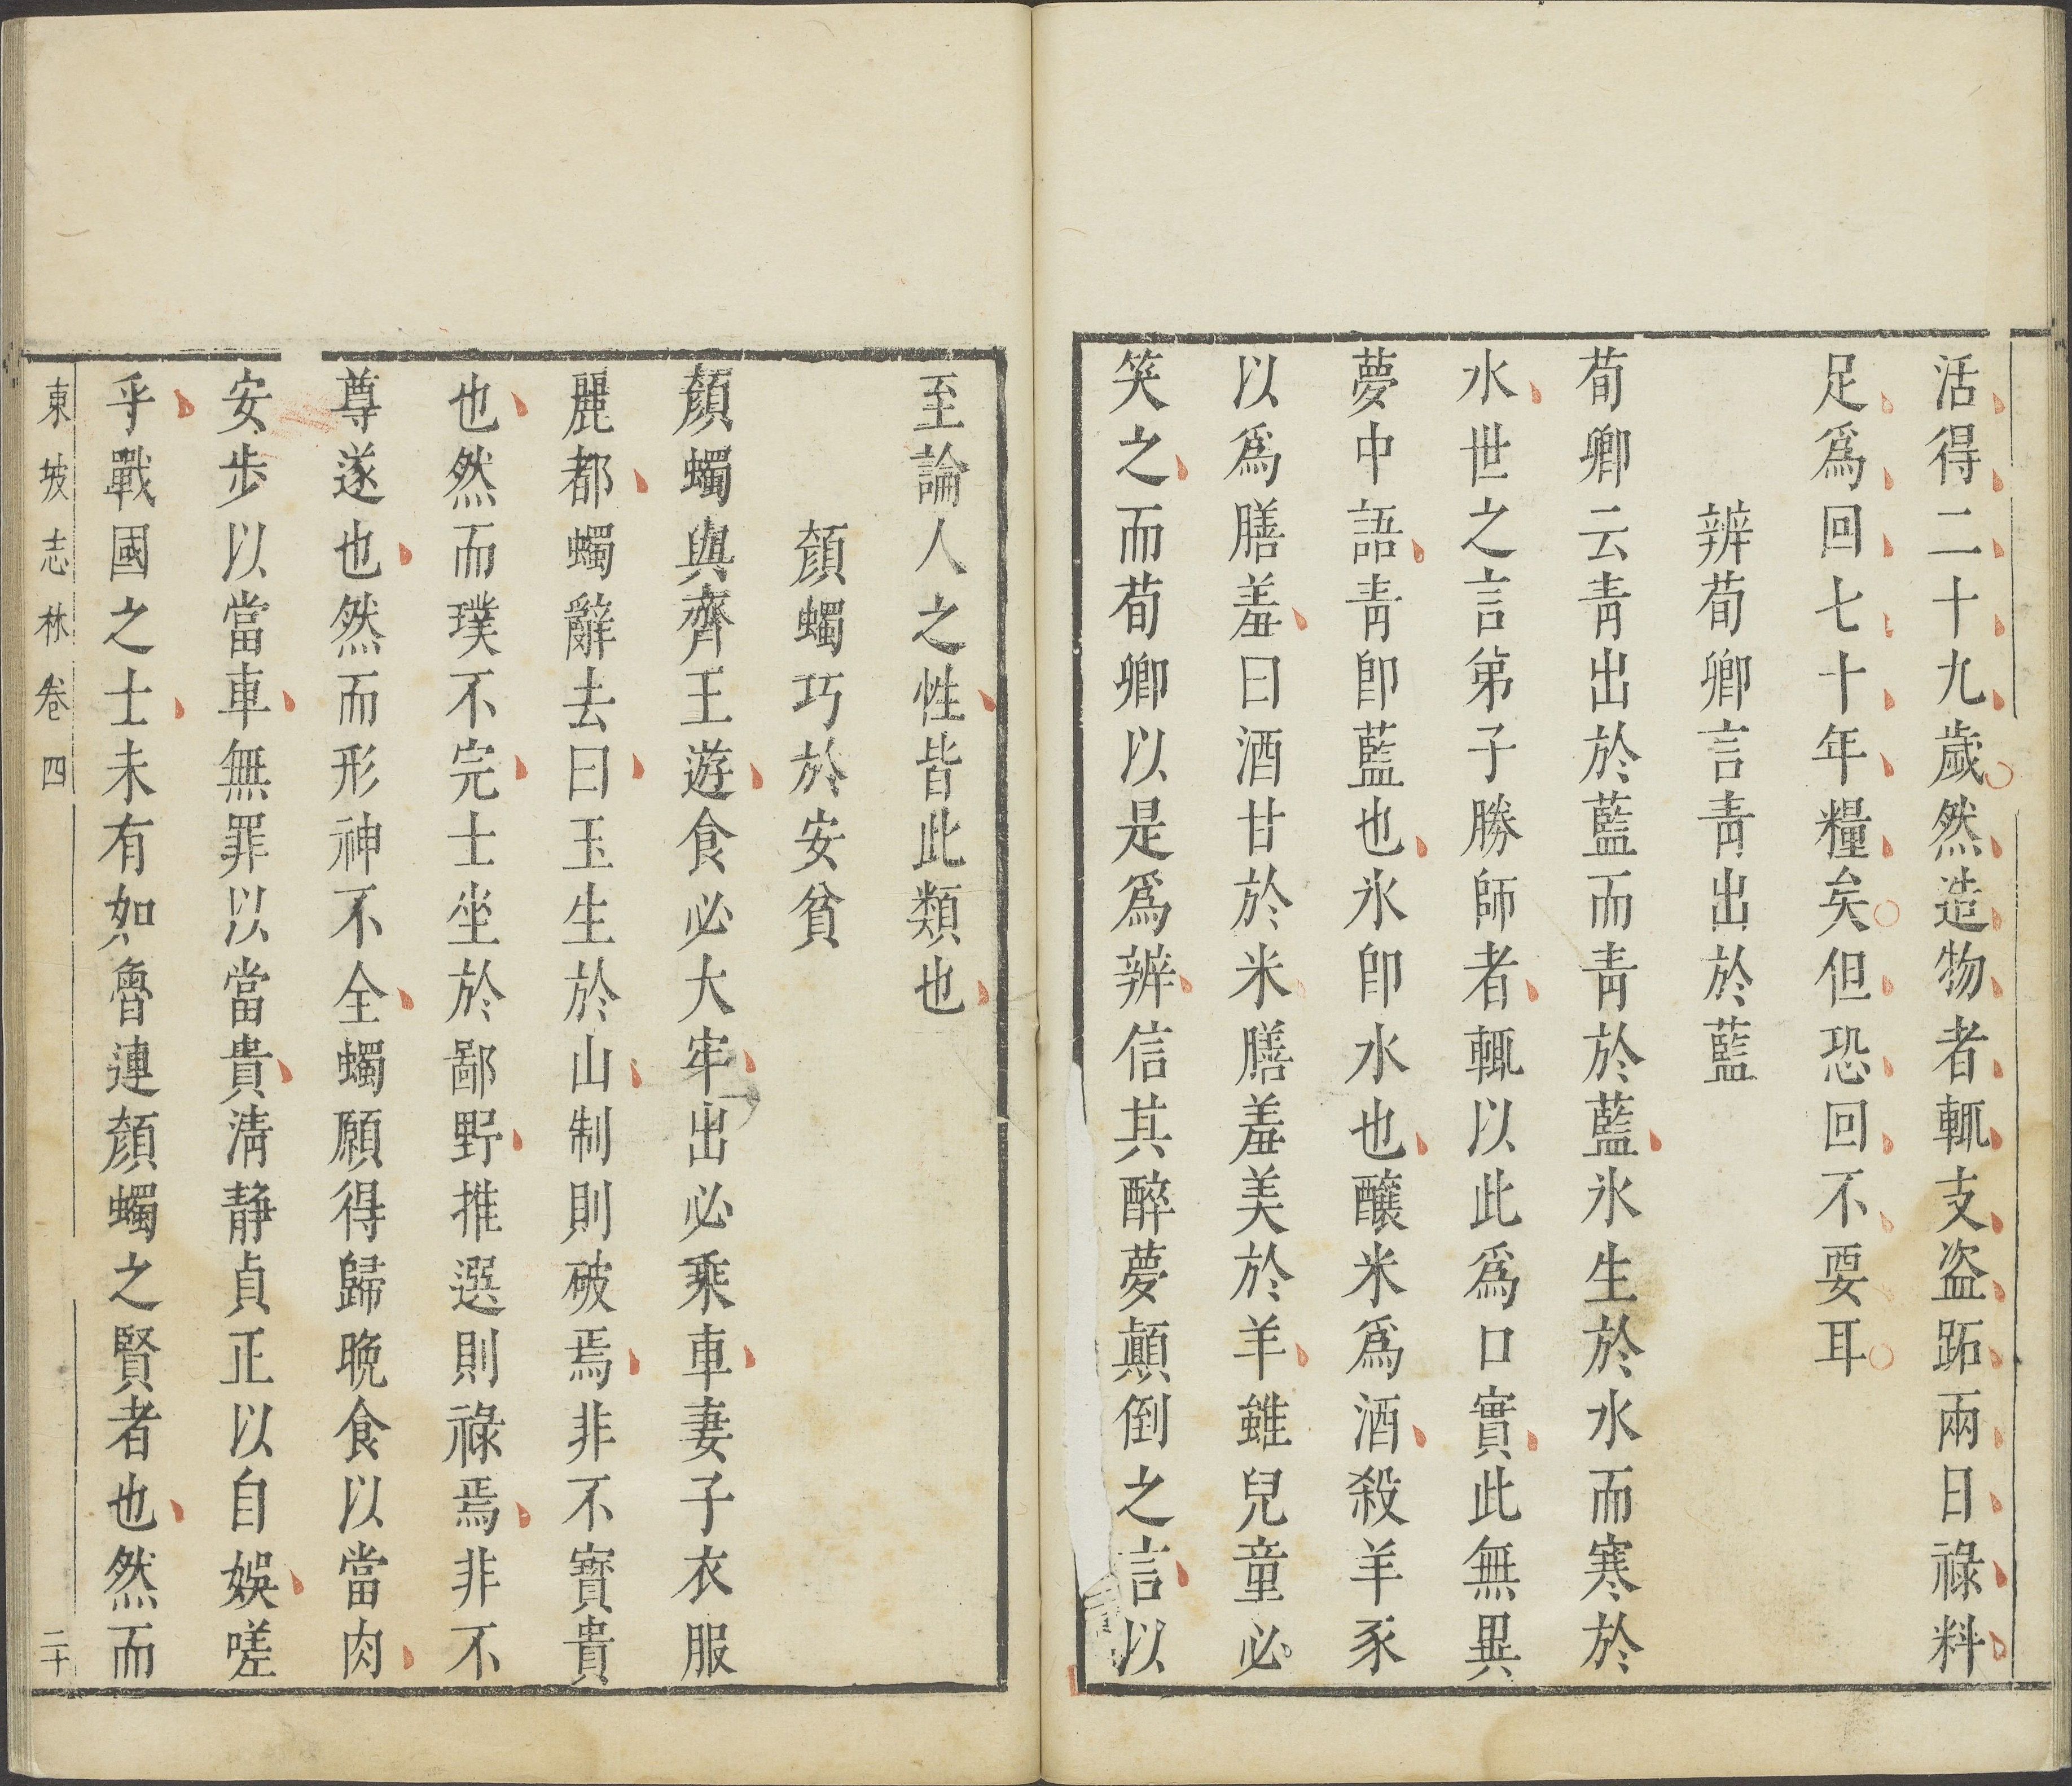 活得二十九歲然造物者輒支盜跖兩日祿料
足爲回七十年糧矣但恐回不要耳
辨荀卿言青出於藍
荀卿云青出於藍而青於藍氷生於水而寒於
水世之言弟子勝師者輒以此爲口實此無異
夢中語青卽藍也氷卽水也釀米爲酒殺羊豕
以爲膳羞曰酒甘於米膳羞美於羊雖兒童必
笑之而荀卿以是爲辨信其醉夢顛倒之言以
至論人之性皆此類也
顏蠋巧於安貧
顏蠋與齊王遊食必大牢出必乘車妻子衣服
麗都蠋辭去曰玉生於山制則破焉非不寶貴
也然而璞不完士坐於鄙野推選則祿焉非不
尊遂也然而形神不全蠋願得歸晚食以當肉
安步以當車無罪以當貴清靜貞正以自娛嗟
乎戰國之士未有如魯連顏蠋之賢者也然而
東坡志林卷四
二十